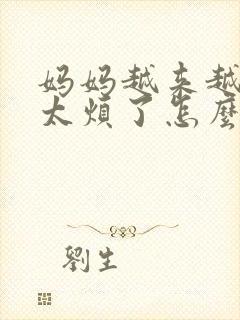 妈妈越来越
太烦了怎麼
劉生